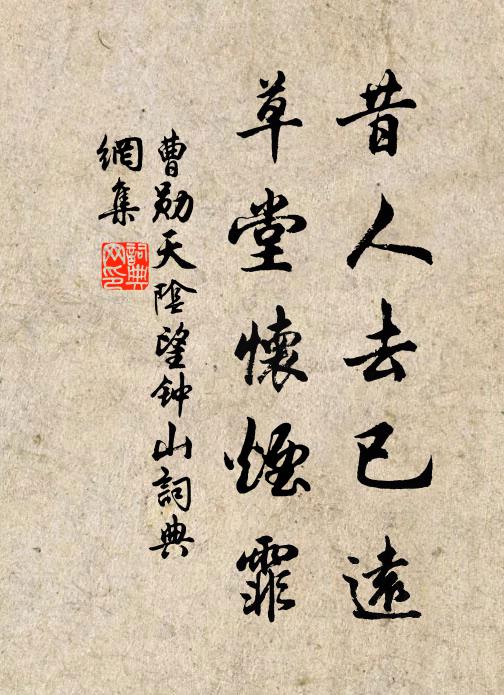 昔人去已遠
草堂懷煙霏
曹勛天陰望钟山詞典
網集
詞典网印